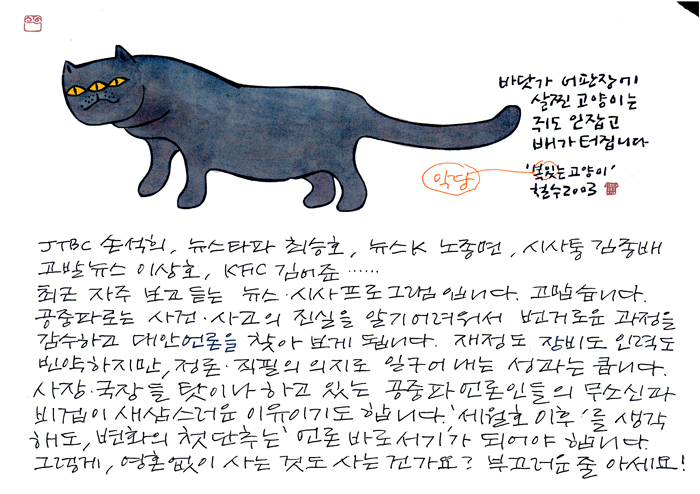 바닷가 어판장에
살찐 고양이는
쥐도 안잡고
배가 터집니다
'복있는 고양이'
철수2003
악당
JTBC 손석희, 뉴스타파 최승호, 뉴스K 노종면, 시사통 김종배
고발뉴스 이상호, KFC 김어준 ……
최근 자주 보고 듣는 뉴스·시사프로그램입니다. 고맙습니다.
공중파로는 사건·사고의 진실을 알기어려워서 번거로운 과정을
감수하고 대안언론을 찾아 보게 됩니다. 재정도 장비도 인력도
빈약하지만, 정론·직필의 의지로 일구어 내는 성과는 큽니다.
사장·국장들 탓이나 하고 있는 공중파언론인들의 무소신과
비겁이 새삼스러운 이유이기도 합니다. '세월호 이후'를 생각
해도, 변화의 첫 단추는 '언론 바로서기'가 되어야 합니다.
그렇게, 영혼없이 사는 것도 사는 건가요? 부끄러운 줄 아세요!